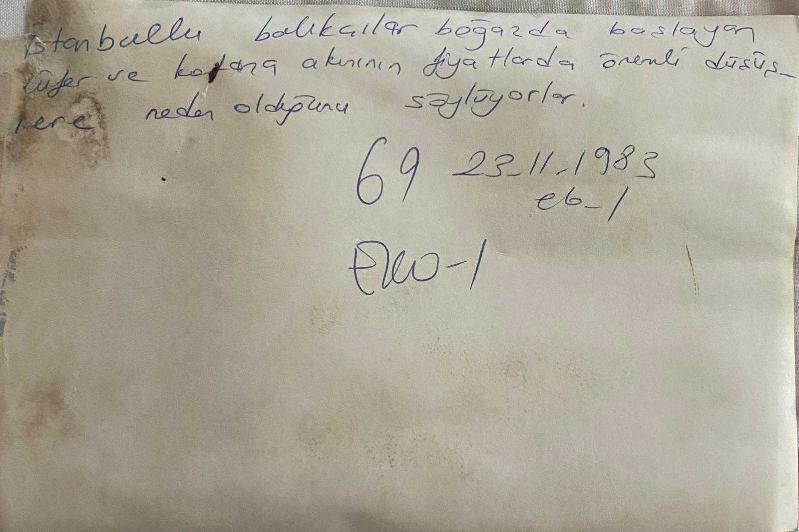 İstanbullu balıkçılar boğazda başlayan
lüfer ve kofana akınının fiyatlarda önemli düşüş-
lere neden olduğunu söylüyorlar.
69 23-11-1983
eb-1